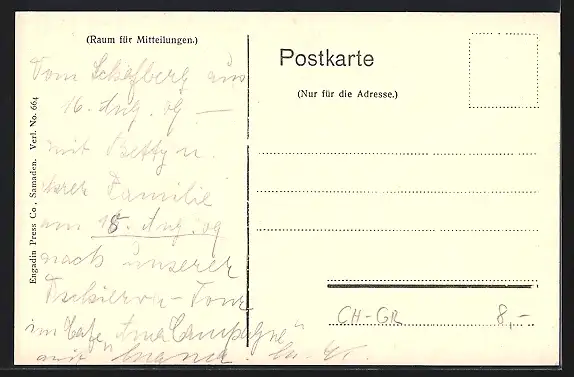 (Raum für Mitteilungen.)
Vom Schafberg aus
16. Aug. 09 —
mit Betty u.
ihrer Familie
am 18. Aug. 09
nach unserer
Tschierva-Tour
im Cafe
mit
Engadin Press Co., Samaden. Verl. No. 664
Postkarte
(Nur für die Adresse.)
CH-GR 8,-